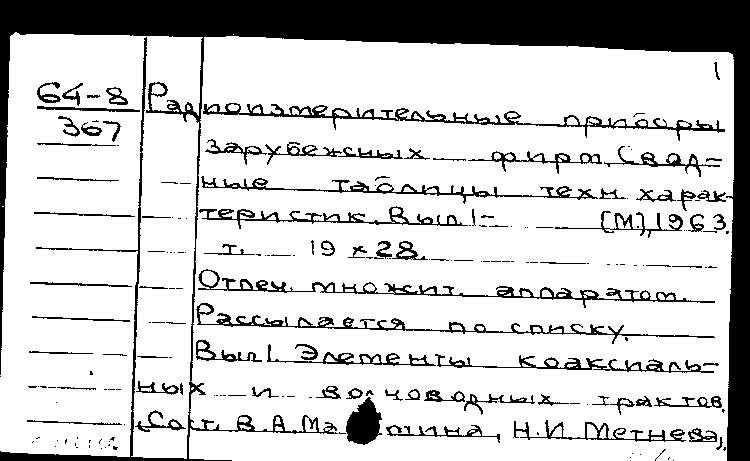 1
64-8
367
Радиоизмерительные приборы
зарубежных фирм. Свод=
ные таблицы техн. харак-
теристик. Вып. 1- [М.], 1963.
т. 19 x 28.
Отпеч. множит. аппаратом.
Рассылается по списку.
Вып. 1. Элементы коаксиаль=
ных и волноводных трактов.
(Сост. В.А. Н.И. Метнева).